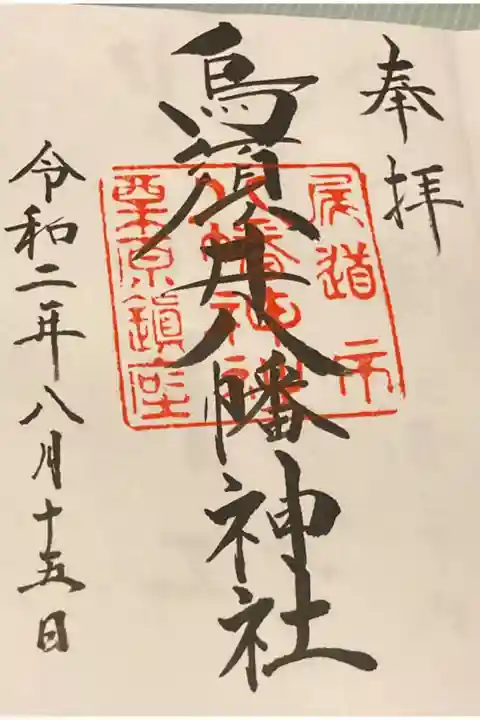 奉拝
尾道市
烏須井八幡神社
八幡神社
栗原鎮座
令和二年八月十五日